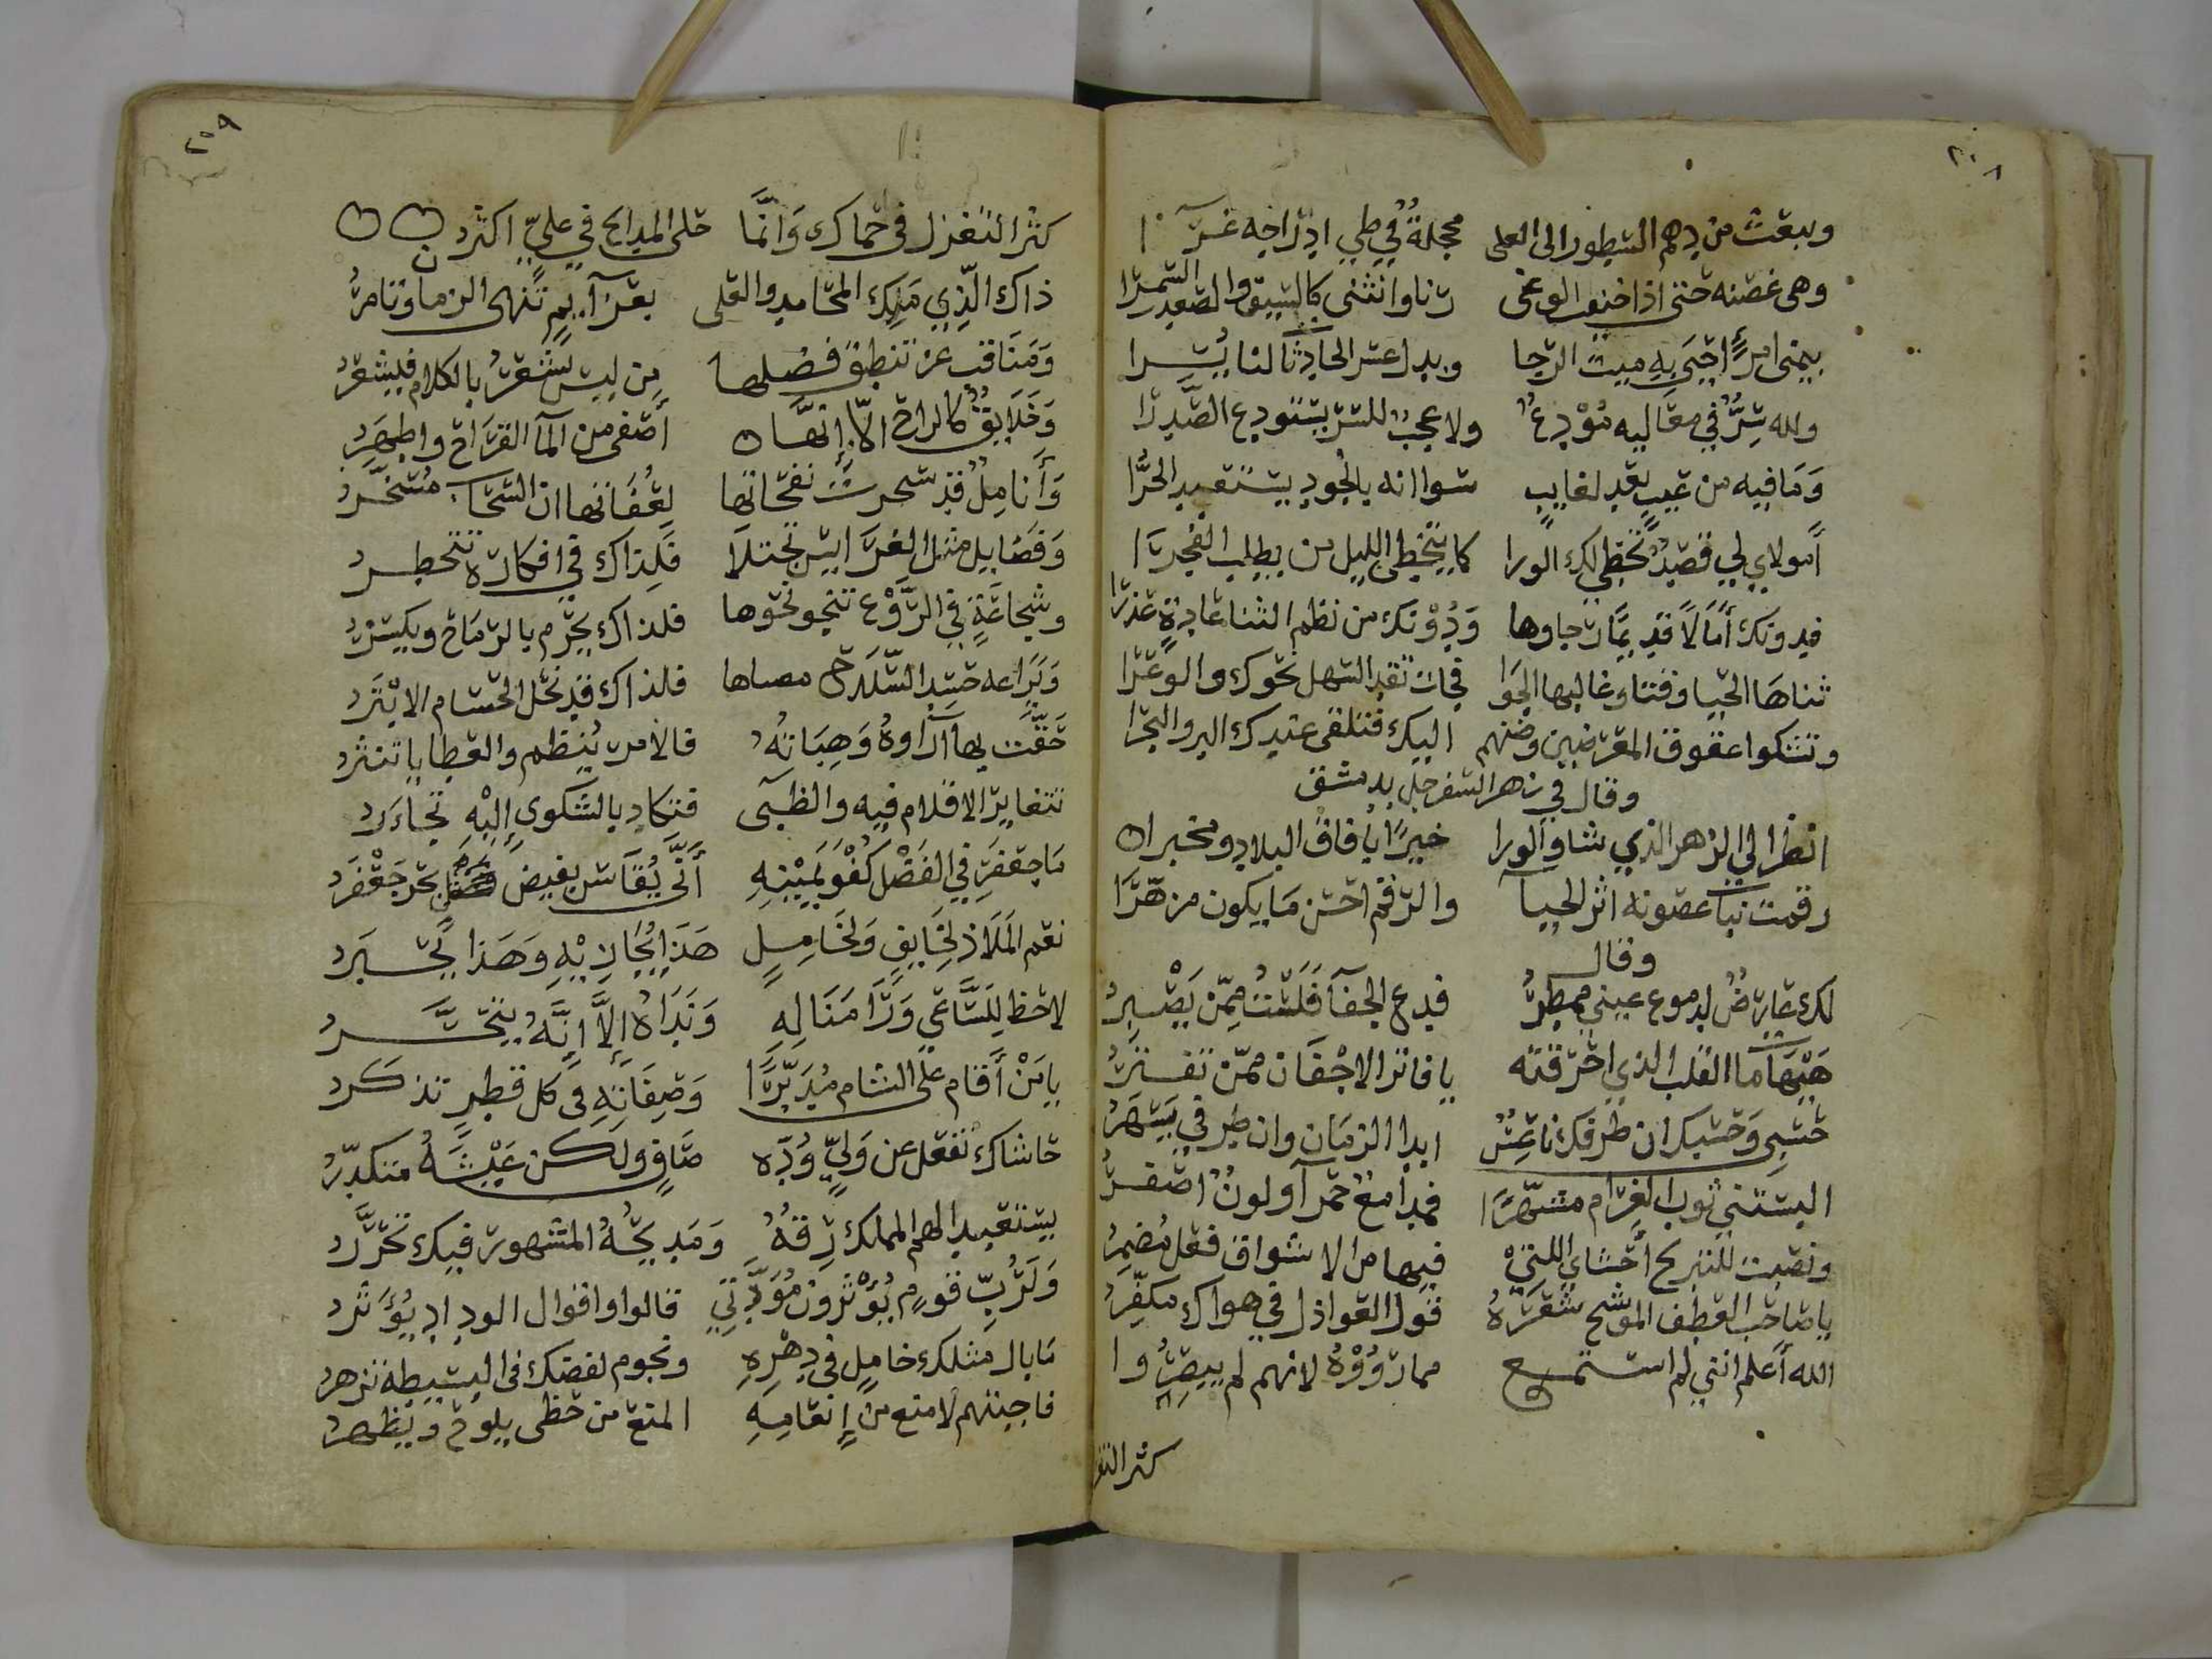 ٢٠٨
ويبعث من دهم السطور الى العلى محجلة في طي ادراجه غرا
وهى غصنه حتى اذا خيف الوغى رنا وانثنى كالسيف والصعدة السمرا
بيمنى امرئ احيى به ميت الرجا وبدل عسر الحادثات لنا يسرا
ولله سر في معاليه مودع ولا عجب للسر يستودع الصدرا
وما فيه من عيب يعد لغايب سوا انه بالجود يستعبد الحرا
أمولاي لي قصد تخطى لك الورا كما يتخطى الليل من يطلب الفجرا
فدونك أمالا قد بمات جاوها ودونك من نظم الثنا غادة عذرا
ثناها الحيا وقتا وغالبها الجوا فجات تقد السهل نحوك والوعرا
وتشكوا عقوق المعرضين وضنهم اليك فتلقى عندك البر والبحرا
وقال في زهر السفرجل بدمشق
انظر الى الزهر الذي شاو الورا خيرا بافاق البلاد ومخبرا
رقمت نبا غصونه اثر الحيا والرقم احسن ما يكون مزهرا
وقال
لك عارض لدموع عيني ممطر فدع الجفا فلست ممن يصبر
هيهات ما القلب الذي احرقته يا فاتر الاجفان ممن تفتر
حسبى وحسبك ان طرفك ناعس ابدا الزمان وان طرفي يسهر
البستنى ثوب الغرام مشهرا فمدامع حمر ولون اصفر
ونصبت للتبريح أحشاي اللتي فيها من الاشواق فعل مضمر
يا صاحب العطف الموشح شعره قول العواذل في هواك مكفر
الله أعلم انني لم استمع مما رووه لانهم لم يبصروا
كثر التغز
٢٠٩
كثر التغزل فى حماك وانما حلى المدايح في علي اكثر
ذاك الذي ملك المحامد والعلى بعزايم تنهى الزمان وتامر
ومناقب عن تنطق فضلها من ليس يشعر بالكلام فيشعر
وخلايق كالراح الا انها أصفى من الما القراح واطهر
وأنامل قد سحرت نفحاتها لعفاتها ان السحاب مسخر
وفضايل مثل العرايس تجتلا فلذاك في افكاره تتخطر
وشجاعة في الروع تنحو نحوها فلذاك يجرم بالرماح ويكسر
ويراعه حسد السلاح مضاها فلذاك قد نحل الحسام الابتر
حفت بها آراوه وهباته فالامر ينظم والعطايا تنثر
تتغاير الاقلام فيه والظبى فتكاد بالشكوى إليه تجاءر
ما جعفر في الفضل كفو يمينه أنى يقاس بفيض بحر جعفر
نعم الملاذ لخايف ولخامل هذا يجار به وهذا يجبر
لاحظ للساعي ورا مناله ونداه إلا انه يتحسر
يا من أقام على الشام مدبرا وصفاته فى كل قطر تذكر
حاشاك تفعل عن ولي وده صاف ولكن عيشه متكدر
يستعبد الهم المملك رقه ومديحه المشهور فيك تحرر
ولرب قوم يؤثرون مودتي قالوا واقوال الوداد يؤثر
ما بال مثلك خامل في دهره ونجوم لفضك فى البسيطة تزهر
فاجبتهم لامنع من إنعامه المنع من حظى يلوح ويظهر